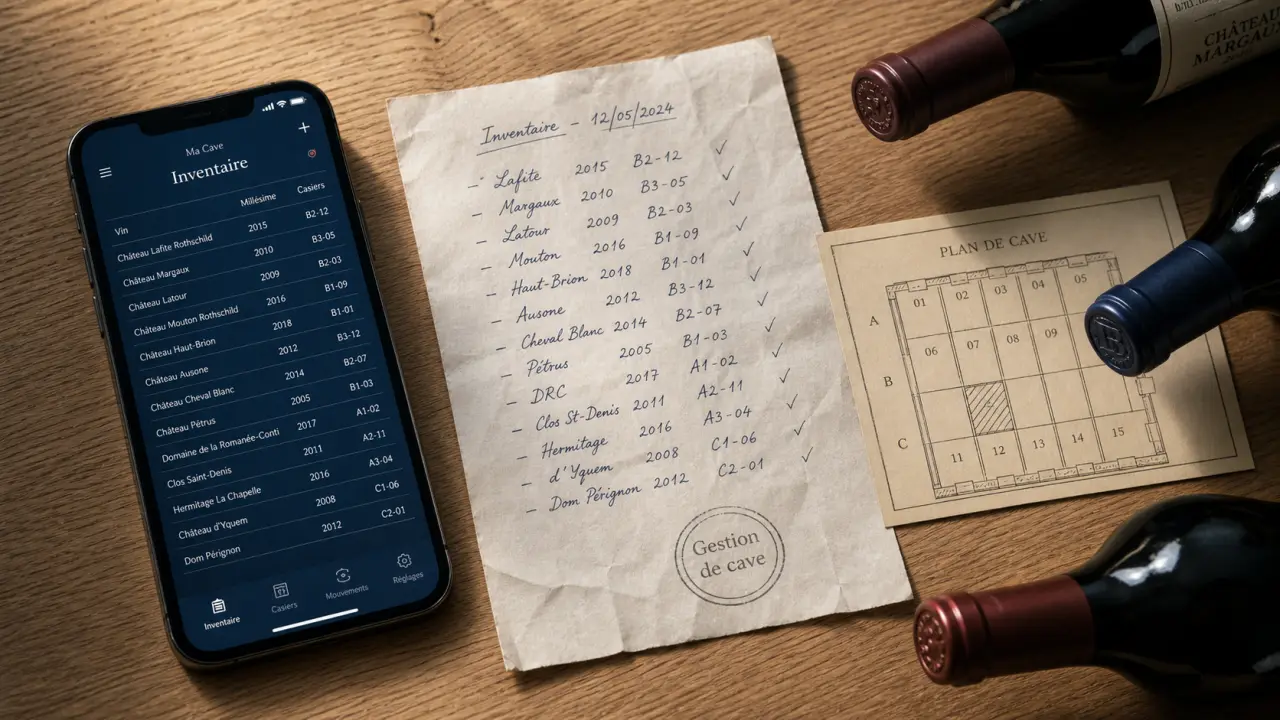 Ma Cave
Inventaire
Vin Millésime Casiers
Château Lafite Rothschild 2015 B2-12
Château Margaux 2010 B3-05
Château Latour 2009 B2-03
Château Mouton Rothschild 2016 B1-09
Château Haut-Brion 2018 B1-01
Château Ausone 2012 B3-12
Château Cheval Blanc 2014 B2-07
Château Pétrus 2005 B1-03
Domaine de la Romanée-Conti 2017 A1-02
Clos Saint-Denis 2011 A2-11
Hermitage La Chapelle 2016 A3-04
Château d'Yquem 2008 C1-06
Dom Pérignon 2012 C2-01
Inventaire Casiers Mouvements Réglages
Inventaire - 12/05/2024
- Lafite 2015 B2-12 ✓
- Margaux 2010 B3-05 ✓
- Latour 2009 B2-03 ✓
- Mouton 2016 B1-09 ✓
- Haut-Brion 2018 B1-01 ✓
- Ausone 2012 B3-12 ✓
- Cheval Blanc 2014 B2-07 ✓
- Pétrus 2005 B1-03 ✓
- DRC 2017 A1-02 ✓
- Clos St-Denis 2011 A2-11 ✓
- Hermitage 2016 A3-04 ✓
- d'Yquem 2008 C1-06 ✓
- Dom Pérignon 2012 C2-01 ✓
Gestion
de cave
PLAN DE CAVE
A 01 02 03 04 05
B 06 07 08 09
C 11 12 13 14 15
CHÂTEAU
MARGAUX